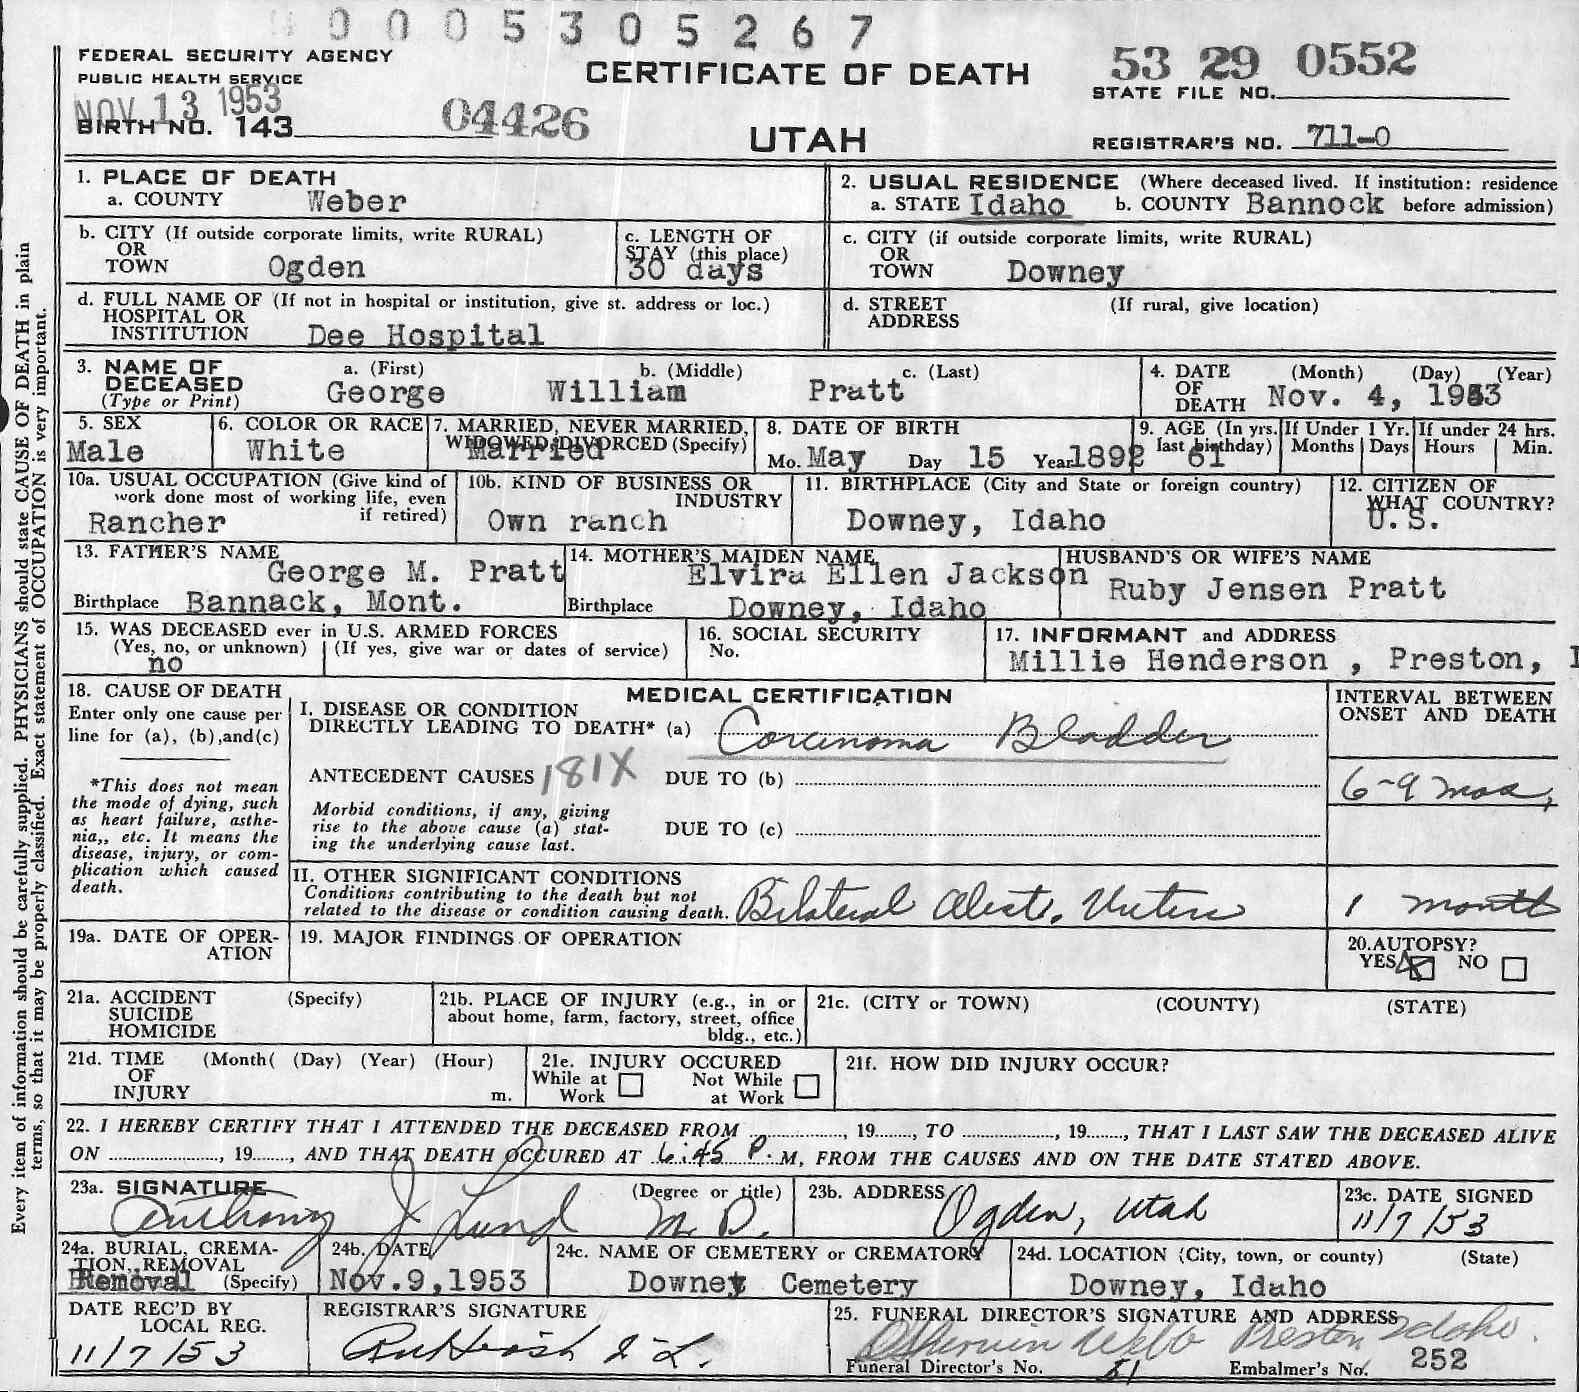 0005305267
FEDERAL SECURITY AGENCY
PUBLIC HEALTH SERVICE
CERTIFICATE OF DEATH
53 29 0552
STATE FILE NO.
NOV 13 1953
BIRTH NO. 143
04426
UTAH
REGISTRAR'S NO. 711-0
1. PLACE OF DEATH
a. COUNTY Weber
2. USUAL RESIDENCE (Where deceased lived. If institution: residence
a. STATE Idaho b. COUNTY Bannock before admission)
b. CITY (If outside corporate limits, write RURAL)
OR
TOWN Ogden
c. LENGTH OF
STAY (this place)
30 days
c. CITY (if outside corporate limits, write RURAL)
OR
TOWN Downey
d. FULL NAME OF (If not in hospital or institution, give st. address or loc.)
HOSPITAL OR
INSTITUTION Dee Hospital
d. STREET (If rural, give location)
ADDRESS
3. NAME OF a. (First) b. (Middle) c. (Last)
DECEASED George William Pratt
(Type or Print)
4. DATE (Month) (Day) (Year)
OF
DEATH Nov. 4, 1953
5. SEX
Male
6. COLOR OR RACE
White
7. MARRIED, NEVER MARRIED,
WIDOWED, DIVORCED (Specify)
Married
8. DATE OF BIRTH
Mo. May Day 15 Year 1892
9. AGE (In yrs.
last birthday)
61
If Under 1 Yr.
Months Days
If under 24 hrs.
Hours Min.
10a. USUAL OCCUPATION (Give kind of
work done most of working life, even
if retired)
Rancher
10b. KIND OF BUSINESS OR
INDUSTRY
Own ranch
11. BIRTHPLACE (City and State or foreign country)
Downey, Idaho
12. CITIZEN OF
WHAT COUNTRY?
U.S.
13. FATHER'S NAME
George M. Pratt
Birthplace Bannack, Mont.
14. MOTHER'S MAIDEN NAME
Elvira Ellen Jackson
Birthplace Downey, Idaho
HUSBAND'S OR WIFE'S NAME
Ruby Jensen Pratt
15. WAS DECEASED ever in U.S. ARMED FORCES
(Yes, no, or unknown) (If yes, give war or dates of service)
no
16. SOCIAL SECURITY
No.
17. INFORMANT and ADDRESS
Millie Henderson , Preston, I
18. CAUSE OF DEATH
Enter only one cause per
line for (a), (b),and(c)
*This does not mean
the mode of dying, such
as heart failure, asthe-
nia,, etc. It means the
disease, injury, or com-
plication which caused
death.
MEDICAL CERTIFICATION
I. DISEASE OR CONDITION
DIRECTLY LEADING TO DEATH* (a) Carcinoma Bladder
ANTECEDENT CAUSES 181X DUE TO (b)
Morbid conditions, if any, giving
rise to the above cause (a) stat-
ing the underlying cause last.
DUE TO (c)
INTERVAL BETWEEN
ONSET AND DEATH
6-9 mos,
II. OTHER SIGNIFICANT CONDITIONS
Conditions contributing to the death but not
related to the disease or condition causing death. Bilateral
1 month
19a. DATE OF OPER-
ATION
19. MAJOR FINDINGS OF OPERATION
20. AUTOPSY?
YES NO
21a. ACCIDENT (Specify)
SUICIDE
HOMICIDE
21b. PLACE OF INJURY (e.g., in or
about home, farm, factory, street, office
bldg., etc.)
21c. (CITY or TOWN) (COUNTY) (STATE)
21d. TIME (Month( (Day) (Year) (Hour)
OF
INJURY m.
21e. INJURY OCCURED
While at Work
Not While at Work
21f. HOW DID INJURY OCCUR?
22. I HEREBY CERTIFY THAT I ATTENDED THE DECEASED FROM , 19 , TO , 19 , THAT I LAST SAW THE DECEASED ALIVE
ON , 19 , AND THAT DEATH OCCURED AT 6:45 P. M, FROM THE CAUSES AND ON THE DATE STATED ABOVE.
23a. SIGNATURE (Degree or title)
Anthony J Lund M.D.
23b. ADDRESS
Ogden, Utah
23c. DATE SIGNED
11/7/53
24a. BURIAL, CREMA-
TION, REMOVAL
Removal (Specify)
24b. DATE
Nov.9,1953
24c. NAME OF CEMETERY OR CREMATORY
Downey Cemetery
24d. LOCATION (City, town, or county) (State)
Downey, Idaho
DATE REC'D BY
LOCAL REG.
11/7/53
REGISTRAR'S SIGNATURE
25. FUNERAL DIRECTOR'S SIGNATURE AND ADDRESS
Webb Preston Idaho.
Funeral Director's No. 51 Embalmer's No. 252
Every item of information should be carefully supplied. PHYSICIANS should state CAUSE OF DEATH in plain
terms, so that it may be properly classified. Exact statement of OCCUPATION is very important.